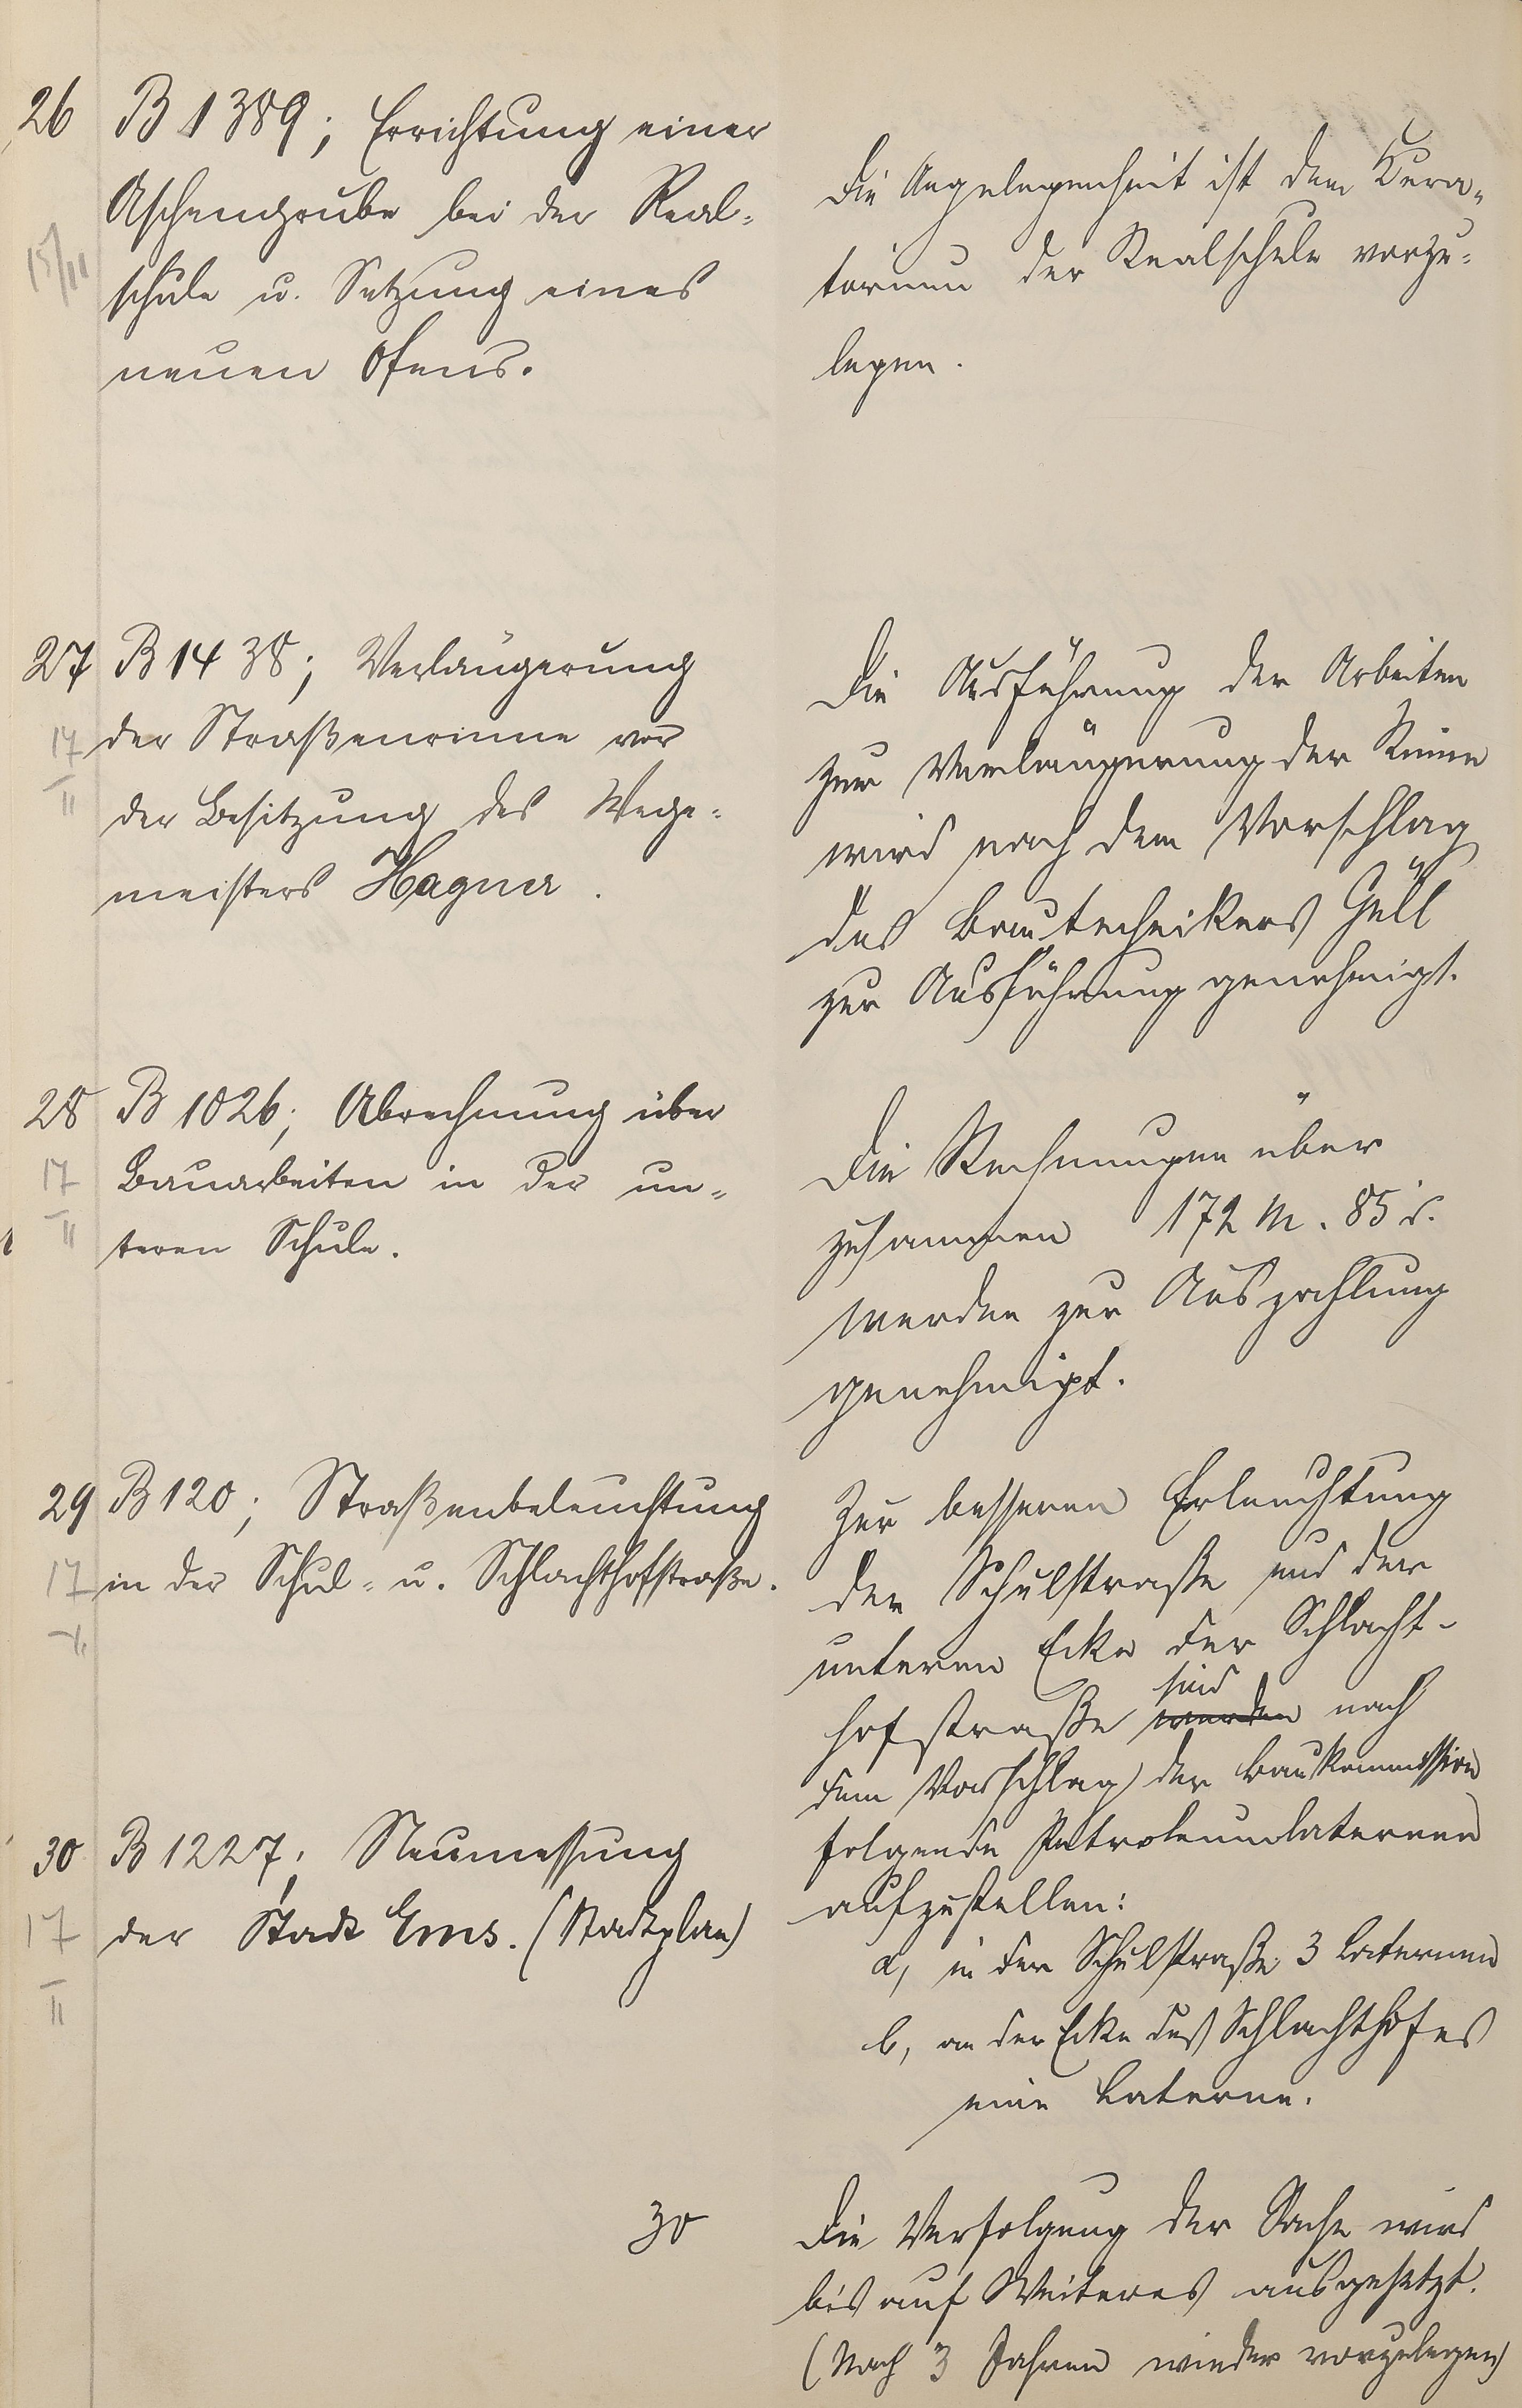 26 B 1389; Errichtung einer
Aschengrube bei der Real-
15/II
schule u. Setzung eines
neuen Ofens.
Die Angelegenheit ist dem Kura-
torium der Realschule vorzu-
legen.
27 B 1438; Verlängerung
17/II
der Straßenrinne vor
der Besitzung des Wege-
meisters Hagner.
Die Ausführung der Arbeiten
zur Verlängerung der Rinne
wird nach dem Vorschlag
des Bautechnikers Güll
zur Ausführung genehmigt.
28 B 1026; Abrechnung über
17/II
Bauarbeiten in der un-
teren Schule.
Die Rechnungen über
zusammen 172 M. 85 d.
werden zur Auszahlung
genehmigt.
29 B 120; Straßenbeleuchtung
17/II
in der Schul- u. Schlachthofstraße.
Zur besseren Erleuchtung
der Schulstraße und der
unteren Ecke der Schlacht-
sind
hofstraße werden nach
dem Vorschlag der Baukommission
folgende Petroleumlaternen
aufzustellen:
a, in der Schulstraße 3 Laternen
b, an der Ecke des Schlachthofes
eine Laterne.
30 B 1227; Neumessung
17/II
der Stadt Ems. (Stadtplan)
30 Die Verfolgung der Sache wird
bis auf Weiteres ausgesetzt.
(Nach 3 Jahren wieder vorzulegen)